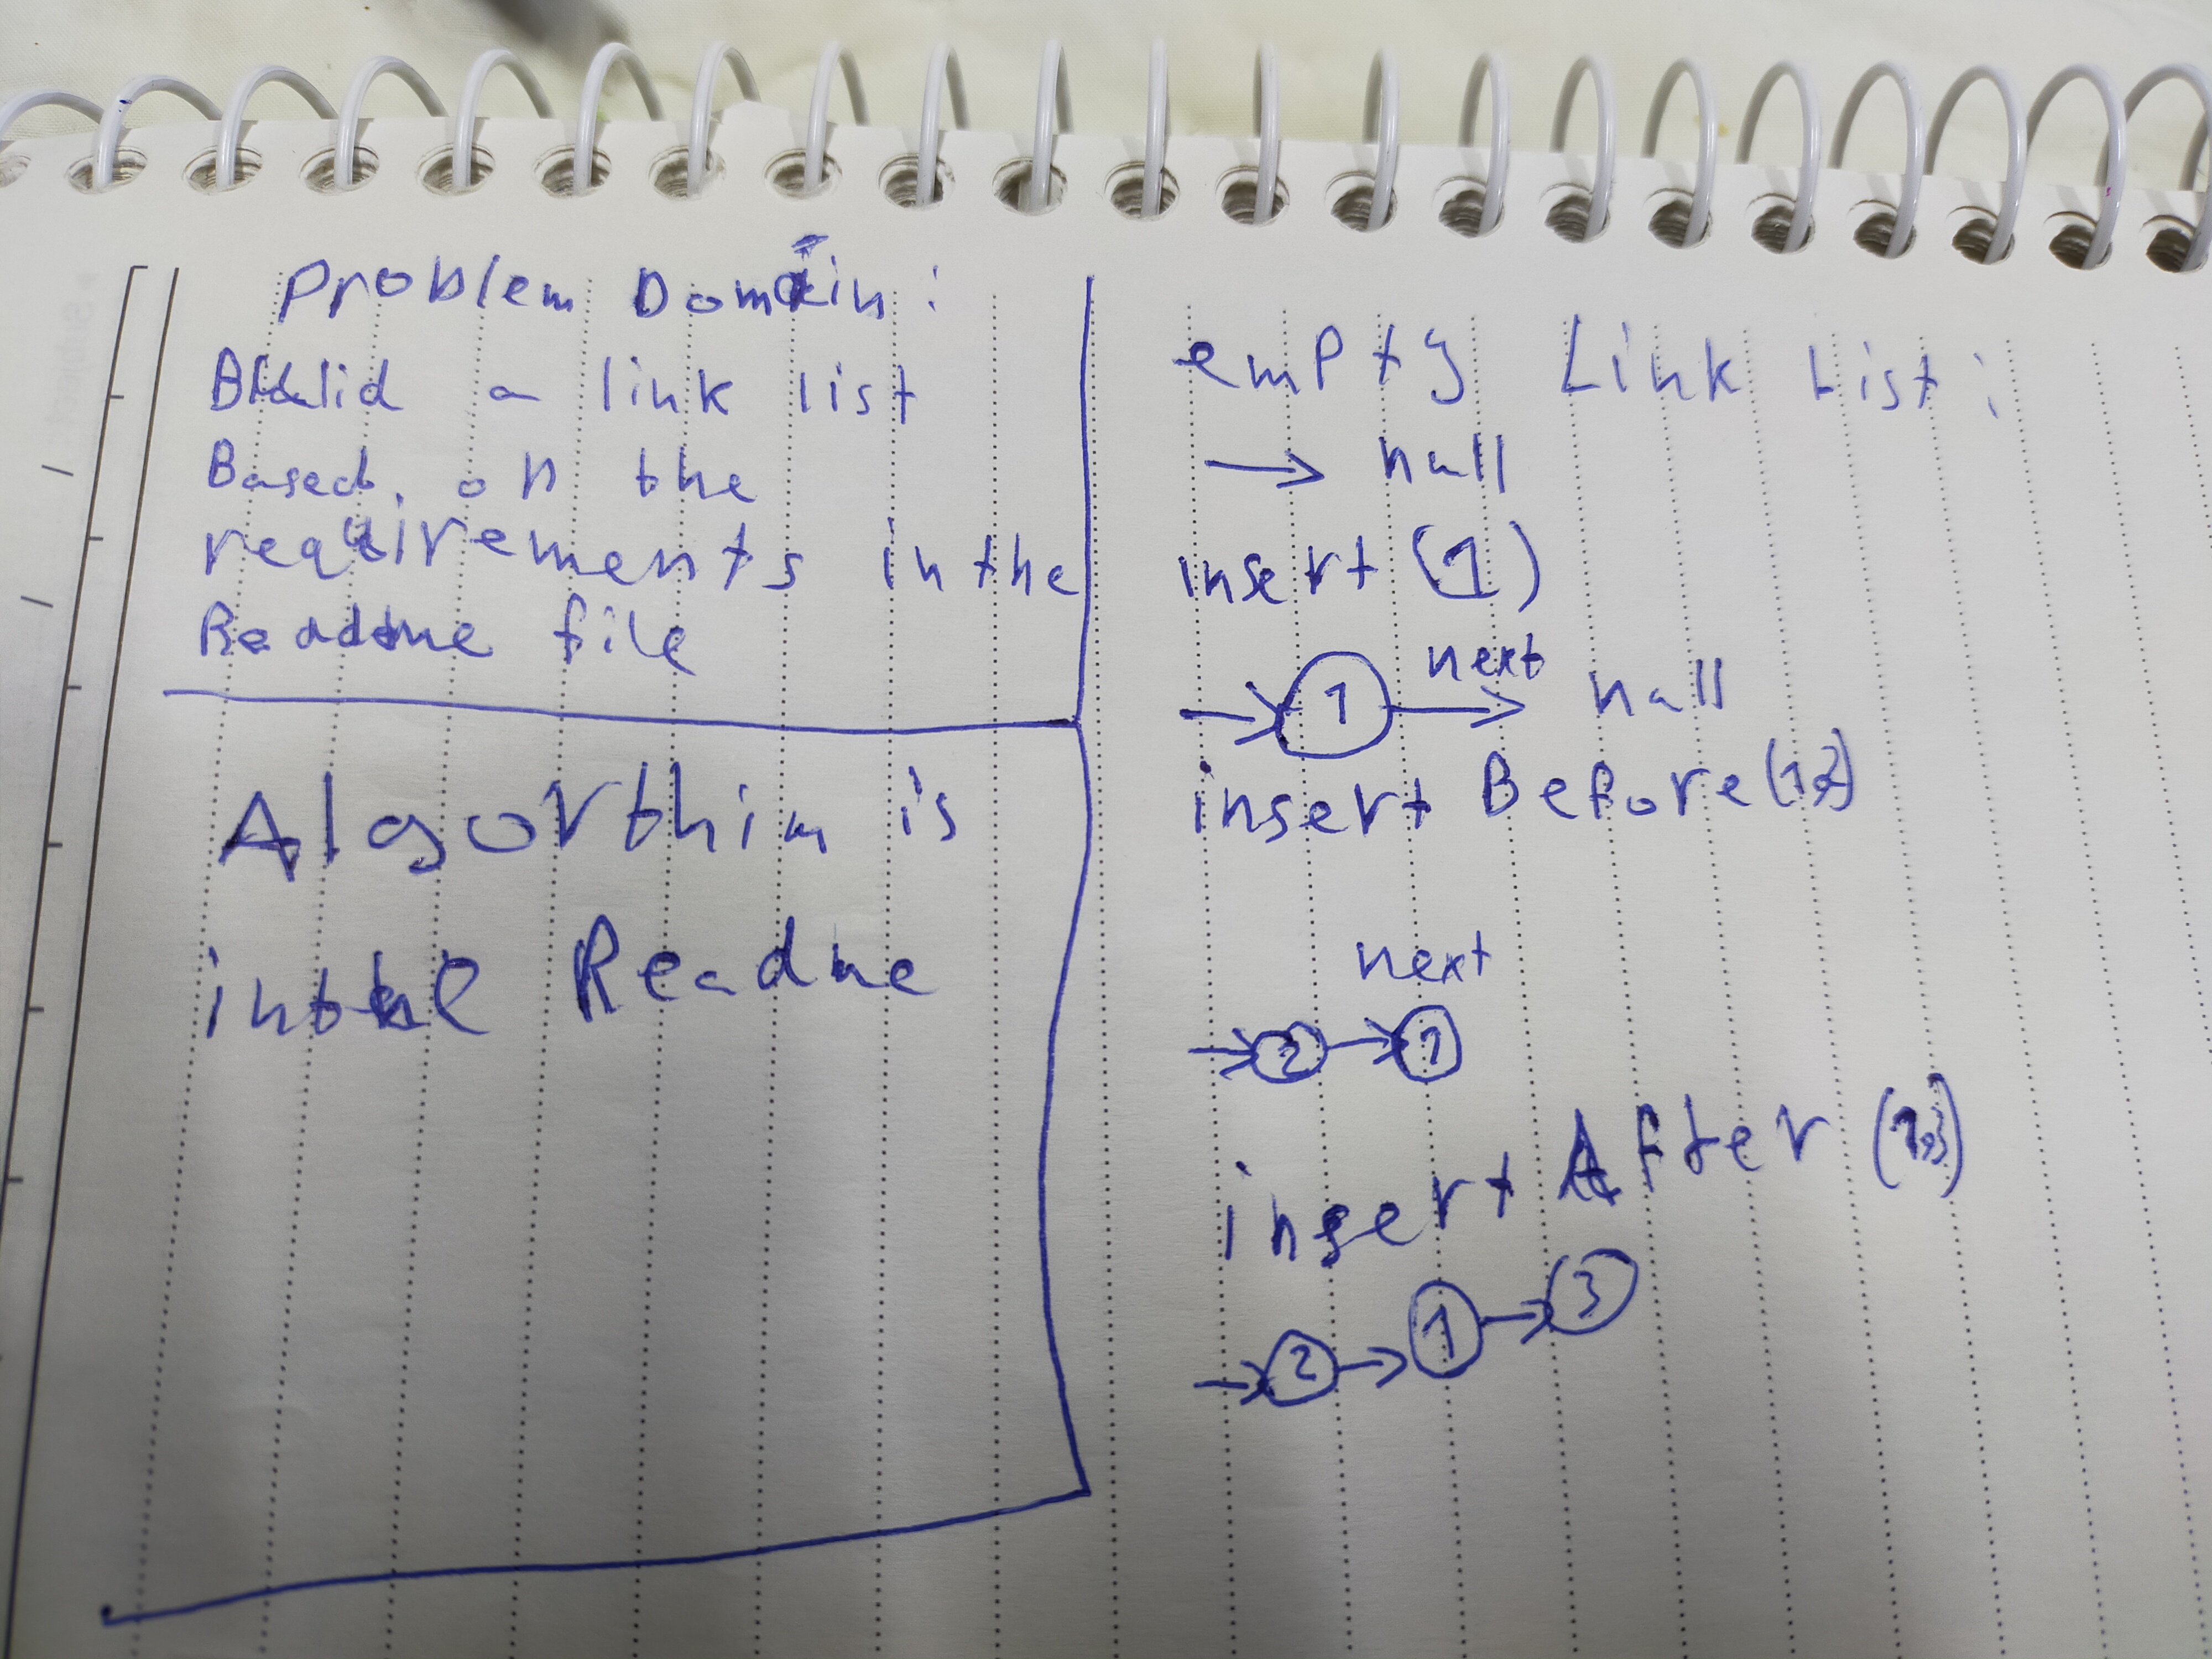 Problem Domain:
Build a link list
Based on the
requirements in the
Readme file
Algorthim is
in the Readme
empty Link List:
→ null
insert (1)
next
→ 1 → null
insert Before (1,2)
next
→ 2 → 1
insert After (1,3)
→ 2 → 1 → 3